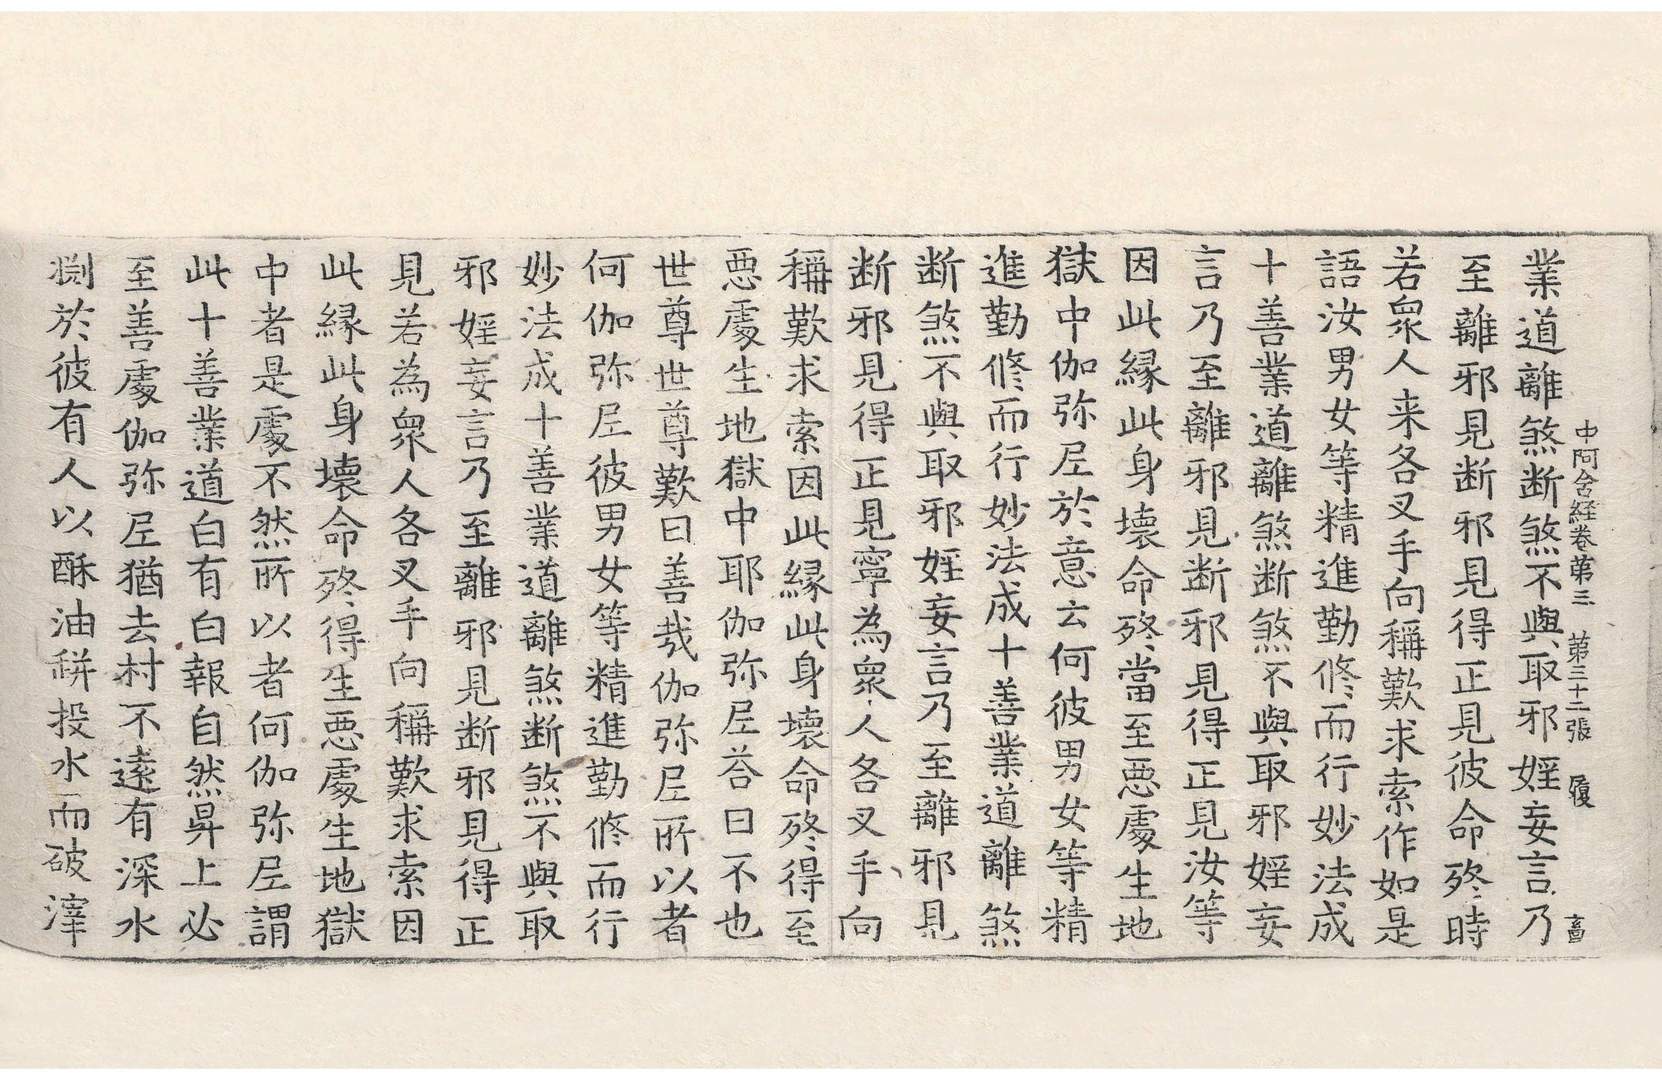 中阿含経卷第三 第三十二張 履
業道離煞断煞不與取邪婬妄言乃
至離邪見断邪見得正見彼命終時
若衆人来各叉手向稱歎求索作如是
語汝男女等精進勤修而行妙法成
十善業道離煞断煞不與取邪婬妄
言乃至離邪見断邪見得正見汝等
因此縁此身壊命終當至悪處生地
獄中伽弥尼於意云何彼男女等精
進勤修而行妙法成十善業道離煞
断煞不與取邪婬妄言乃至離邪見
断邪見得正見寧為衆人各叉手向
稱歎求索因此縁此身壊命終得至
悪處生地獄中耶伽弥尼荅曰不也
世尊世尊歎曰善哉伽弥尼所以者
何伽弥尼彼男女等精進勤修而行
妙法成十善業道離煞断煞不與取
邪婬妄言乃至離邪見断邪見得正
見若為衆人各叉手向稱歎求索因
此縁此身壊命終得生悪處生地獄
中者是處不然所以者何伽弥尼謂
此十善業道白有白報自然昇上必
至善處伽弥尼猶去村不遠有深水
渊於彼有人以酥油缾投水而破滓